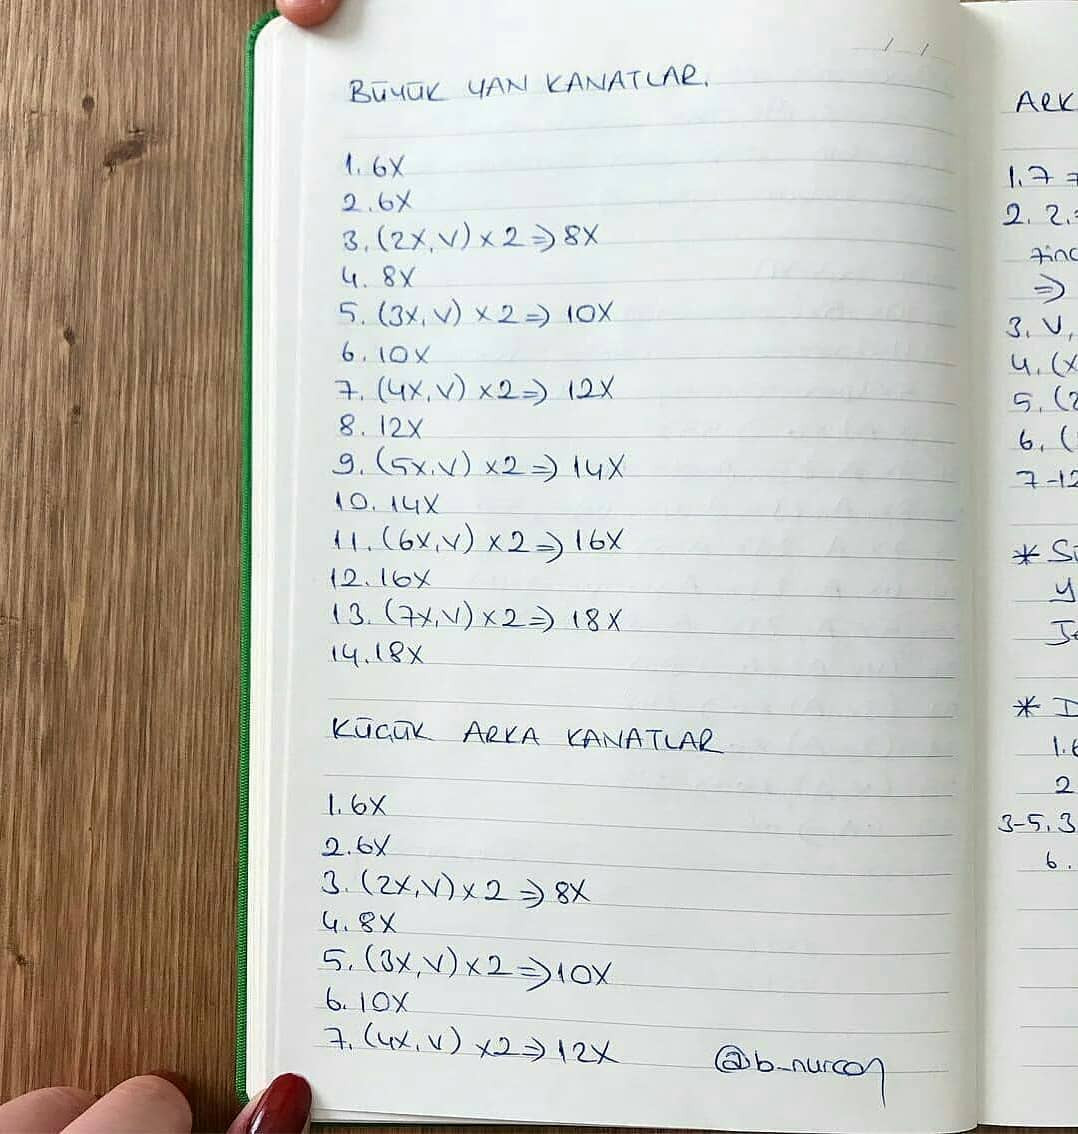 BÜYÜK YAN KANATLAR.
1. 6X
2. 6X
3. (2X, V) x 2 => 8X
4. 8X
5. (3X, V) x 2 => 10X
6. 10X
7. (4X, V) x 2 => 12X
8. 12X
9. (5X, V) x 2 => 14X
10. 14X
11. (6X, V) x 2 => 16X
12. 16X
13. (7X, V) x 2 => 18X
14. 18X
KÜÇÜK ARKA KANATLAR
1. 6X
2. 6X
3. (2X, V) x 2 => 8X
4. 8X
5. (3X, V) x 2 => 10X
6. 10X
7. (4X, V) x 2 => 12X
@b_nurcan
1. 7
2. 2.
=>
3. V,
4. (X
5. (2
6. (
7-12
*
*
1. 6
2
3-5. 3
6.